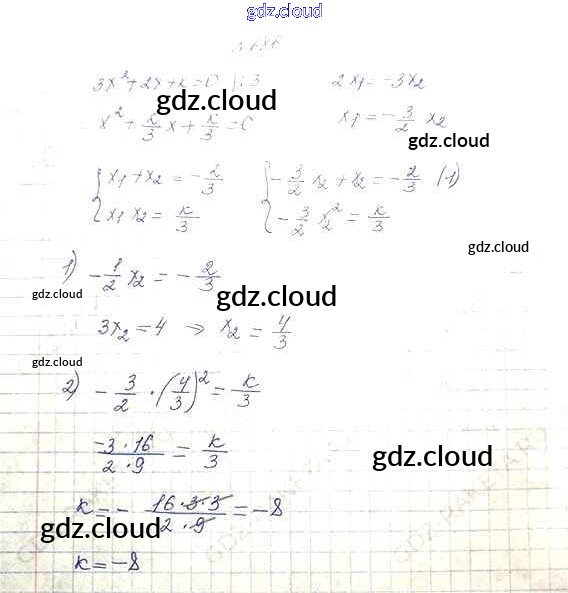 gdz.cloud
3x² + 2x + к = 0 |:3 2x₁ = -3x₂
gdz.cloud
x² + 2/3 x + к/3 = 0 x₁ = -3/2 x₂
gdz.cloud
{ x₁ + x₂ = -2/3 { -3/2 x₂ + x₂ = -2/3 (1)
x₁x₂ = к/3 -3/2 x₂² = к/3
gdz.cloud
1) -1/2 x₂ = -2/3
gdz.cloud gdz.cloud
3x₂ = 4 ⇒ x₂ = 4/3
gdz.cloud
2) -3/2 · (4/3)² = к/3
-3·16/2·9 = к/3
gdz.cloud
к = - 16·3·3/2·9 = -8
gdz.cloud
к = -8